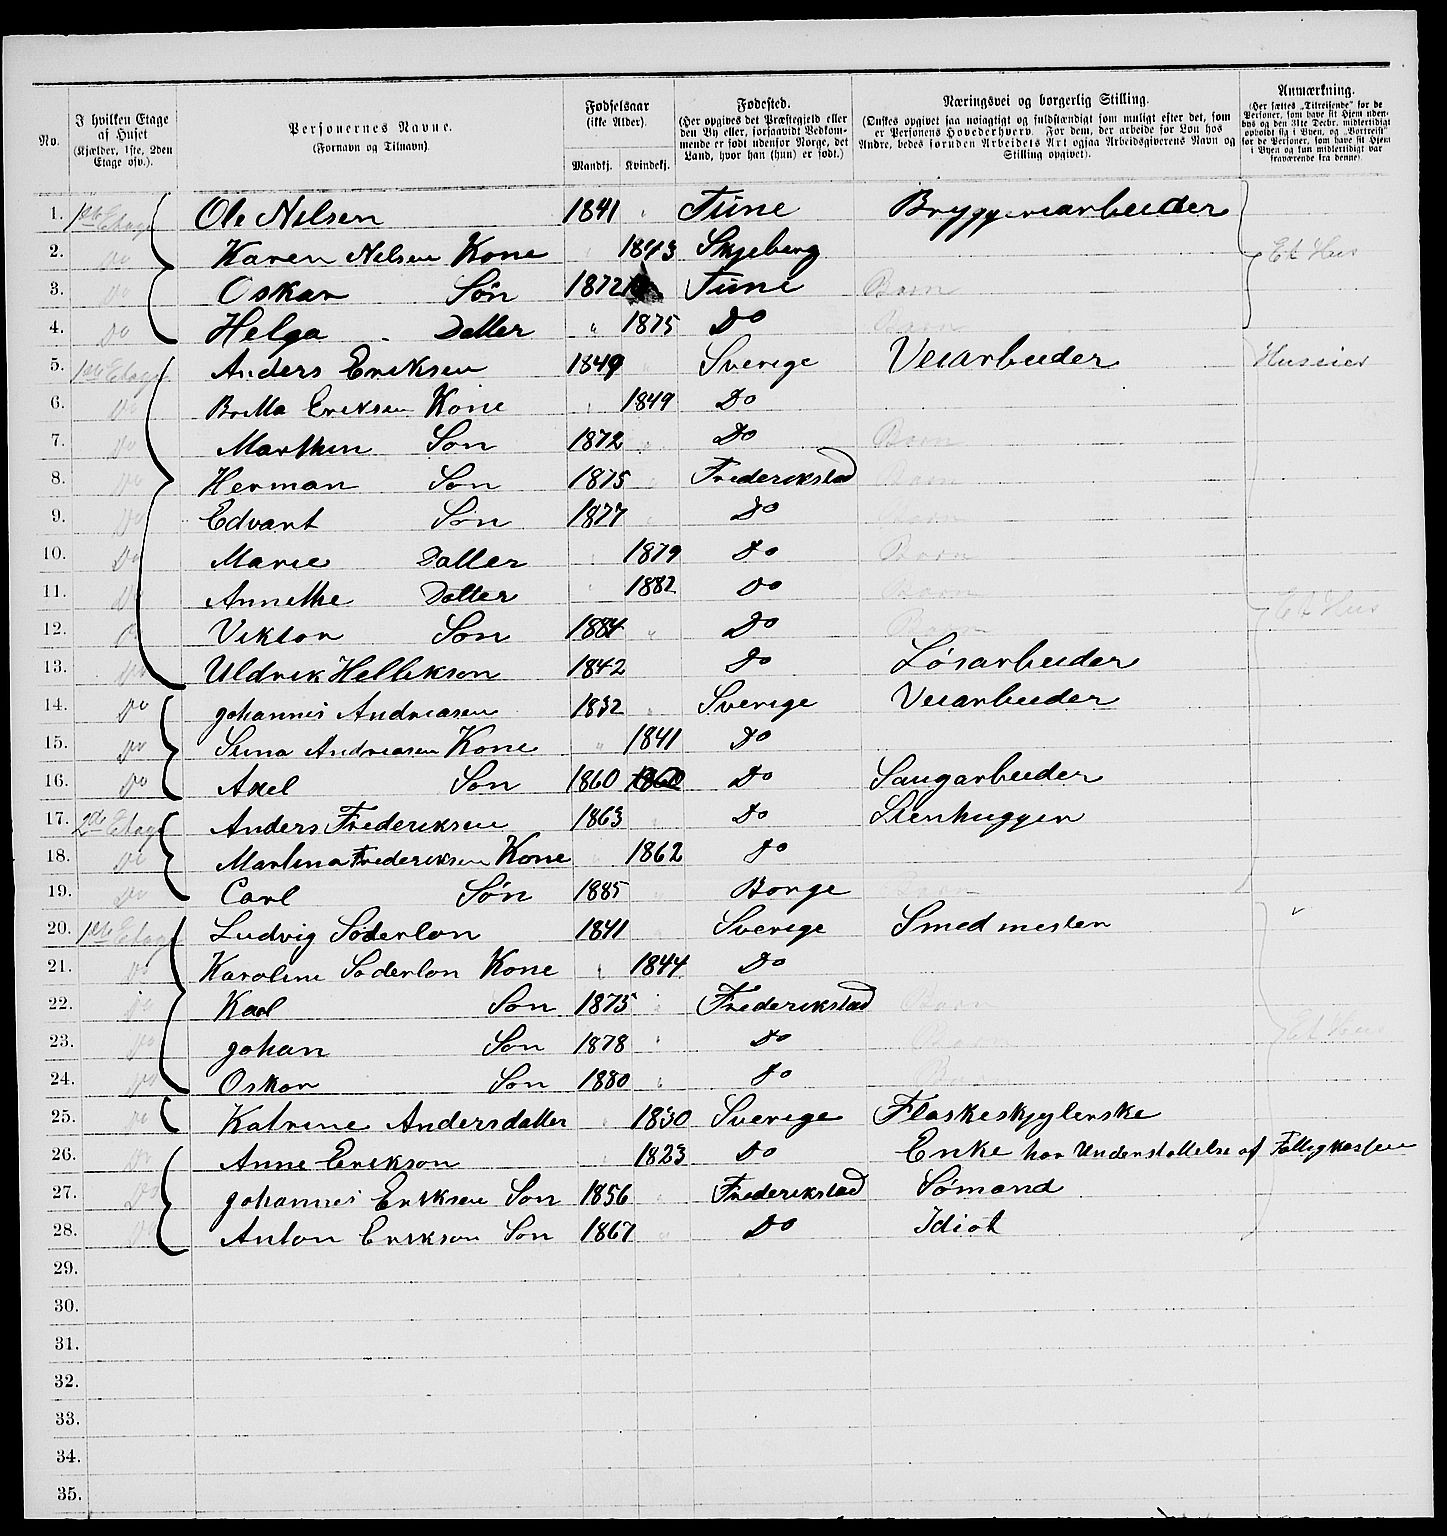 No. I hvilken Etage af Huset (Kjælder, 1ste, 2den Etage osv.). Personernes Navne. (Fornavn og Tilnavn). Fødselsaar (ikke Alder). Mandkj. Kvindekj. Fødested. (Her opgives det Præstegjeld eller den By eller, forsaavidt Vedkommende er født udenfor Norge, det Land, hvor han (hun) er født.) Næringsvei og borgerlig Stilling. (Ønskes opgivet saa nøiagtigt og fuldstændigt som muligt efter det, som er Personens Hovederhverv. For dem, der arbeide for Løn hos Andre, bedes foruden Arbeidets Art ogsaa Arbeidsgiverens Navn og Stilling opgivet). Anmærkning. (Her sættes „Tilreisende" for de Personer, som have sit Hjem udenbys og den 31te Decbr. midlertidigt opholdt sig i Byen, og „Bortreist" for de Personer, som have sit Hjem i Byen og kun midlertidigt var fraværende fra denne).
1. 1ste Etage Ole Nilsen 1841 " Tune Bryggeriarbeider
2. Do Karen Nilsen Kone " 1843 Skjeberg Et Hus
3. Do Oskar Søn 1872 Tune Barn
4. Do Helga Datter " 1875 Do Barn
5. 1ste Etage Anders Eriksen 1849 " Sverige Veiarbeider Huseier
6. Do Britta Eriksen Kone " 1849 Do
7. Do Marthin Son 1872 " Do Barn
8. Do Herman Son 1875 " Frederikstad Barn
9. Do Edvart Son 1877 " Do Barn
10. Do Marie Datter " 1879 Do Barn
11. Do Annethe Datter " 1882 Do Barn Et Hus
12. Do Viktor Son 1884 " Do Barn
13. Do Uldrik Hellikson 1842 Do Løsarbeider
14. Do Johannes Andreasen 1832 " Sverige Veiarbeider
15. Do Stina Andreasen Kone " 1841 Do
16. Do Axel Son 1860 1860 Do Saugarbeider
17. 2den Etage Anders Frederiksen 1863 " Do Stenhugger
18. Do Martina Frederiksen Kone " 1862 Do
19. Do Carl Søn 1885 " Borge Barn
20. 1ste Etage Ludvig Söderlon 1841 " Sverige Smedmester "
21. Do Karoline Soderlon Kone " 1844 Do
22. Do Karl Son 1875 " Frederikstad Barn
23. Do Johan Son 1878 " Do Barn Et Hus
24. Do Oskar Son 1880 " Do Barn
25. Do Katrine Andersdatter " 1830 Sverige Flaskeskyglerske
26. Do Anne Erikson 1823 Do Enke har Understøttelse af Fattigkassen
27. Do Johannes Eriksen Son 1856 " Frederikstad Sömand
28. Do Anton Erikson Son 1867 " Do Idiot
29.
30.
31.
32.
33.
34.
35.